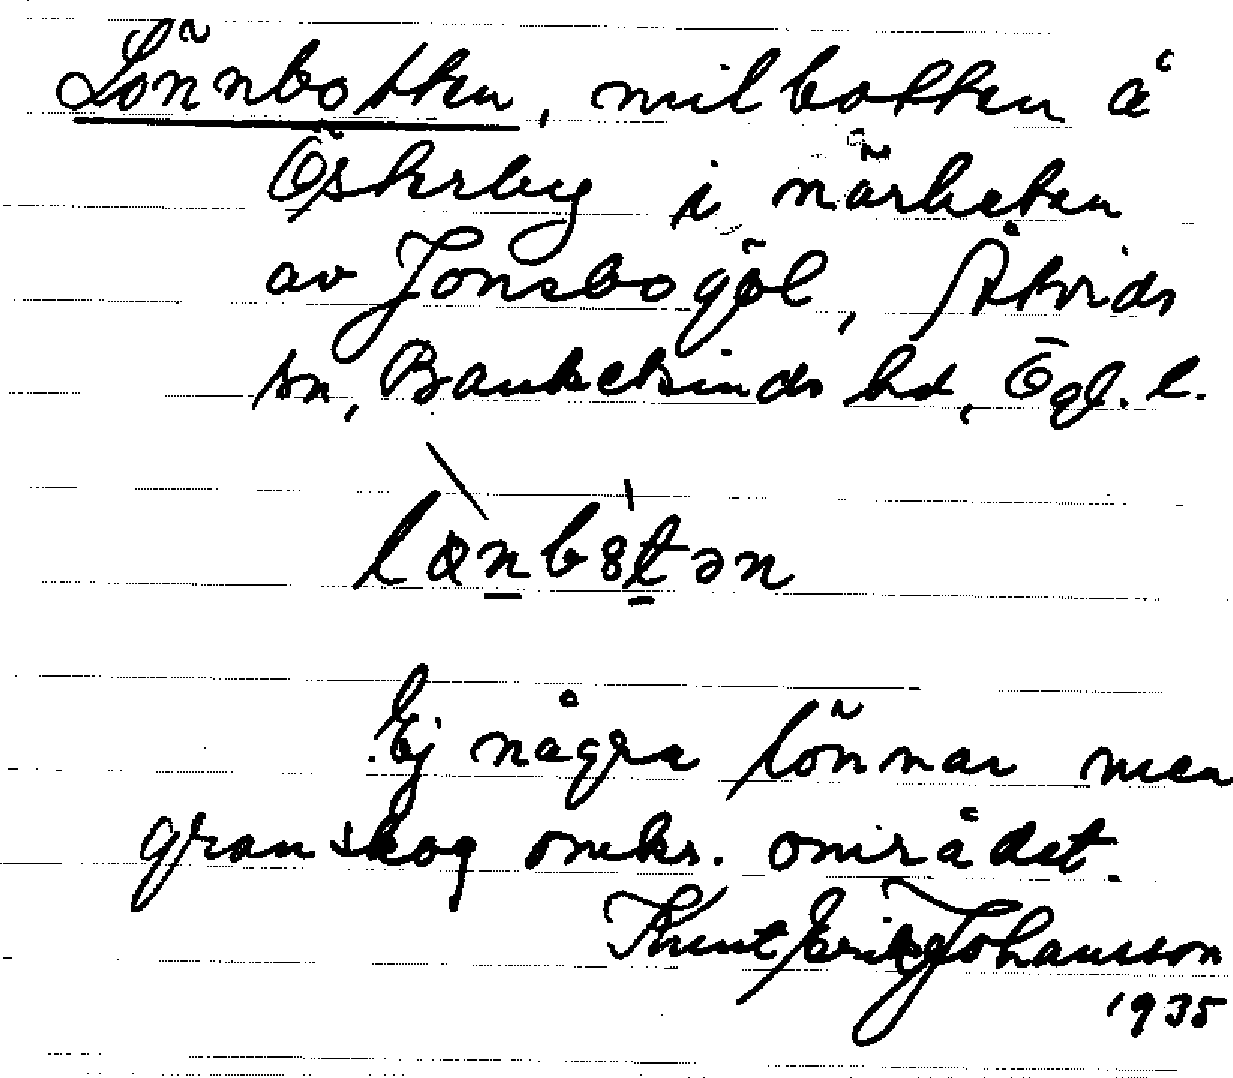 Lönnbotten, milbotten å
Österby i närheten
av Jonsbogöl, Åtvids
sn, Bankekinds hd, Ögl. l.
lönbotən
Ej några lönnar men
granskog omkr. området.
Knut Erik Johansson
1935